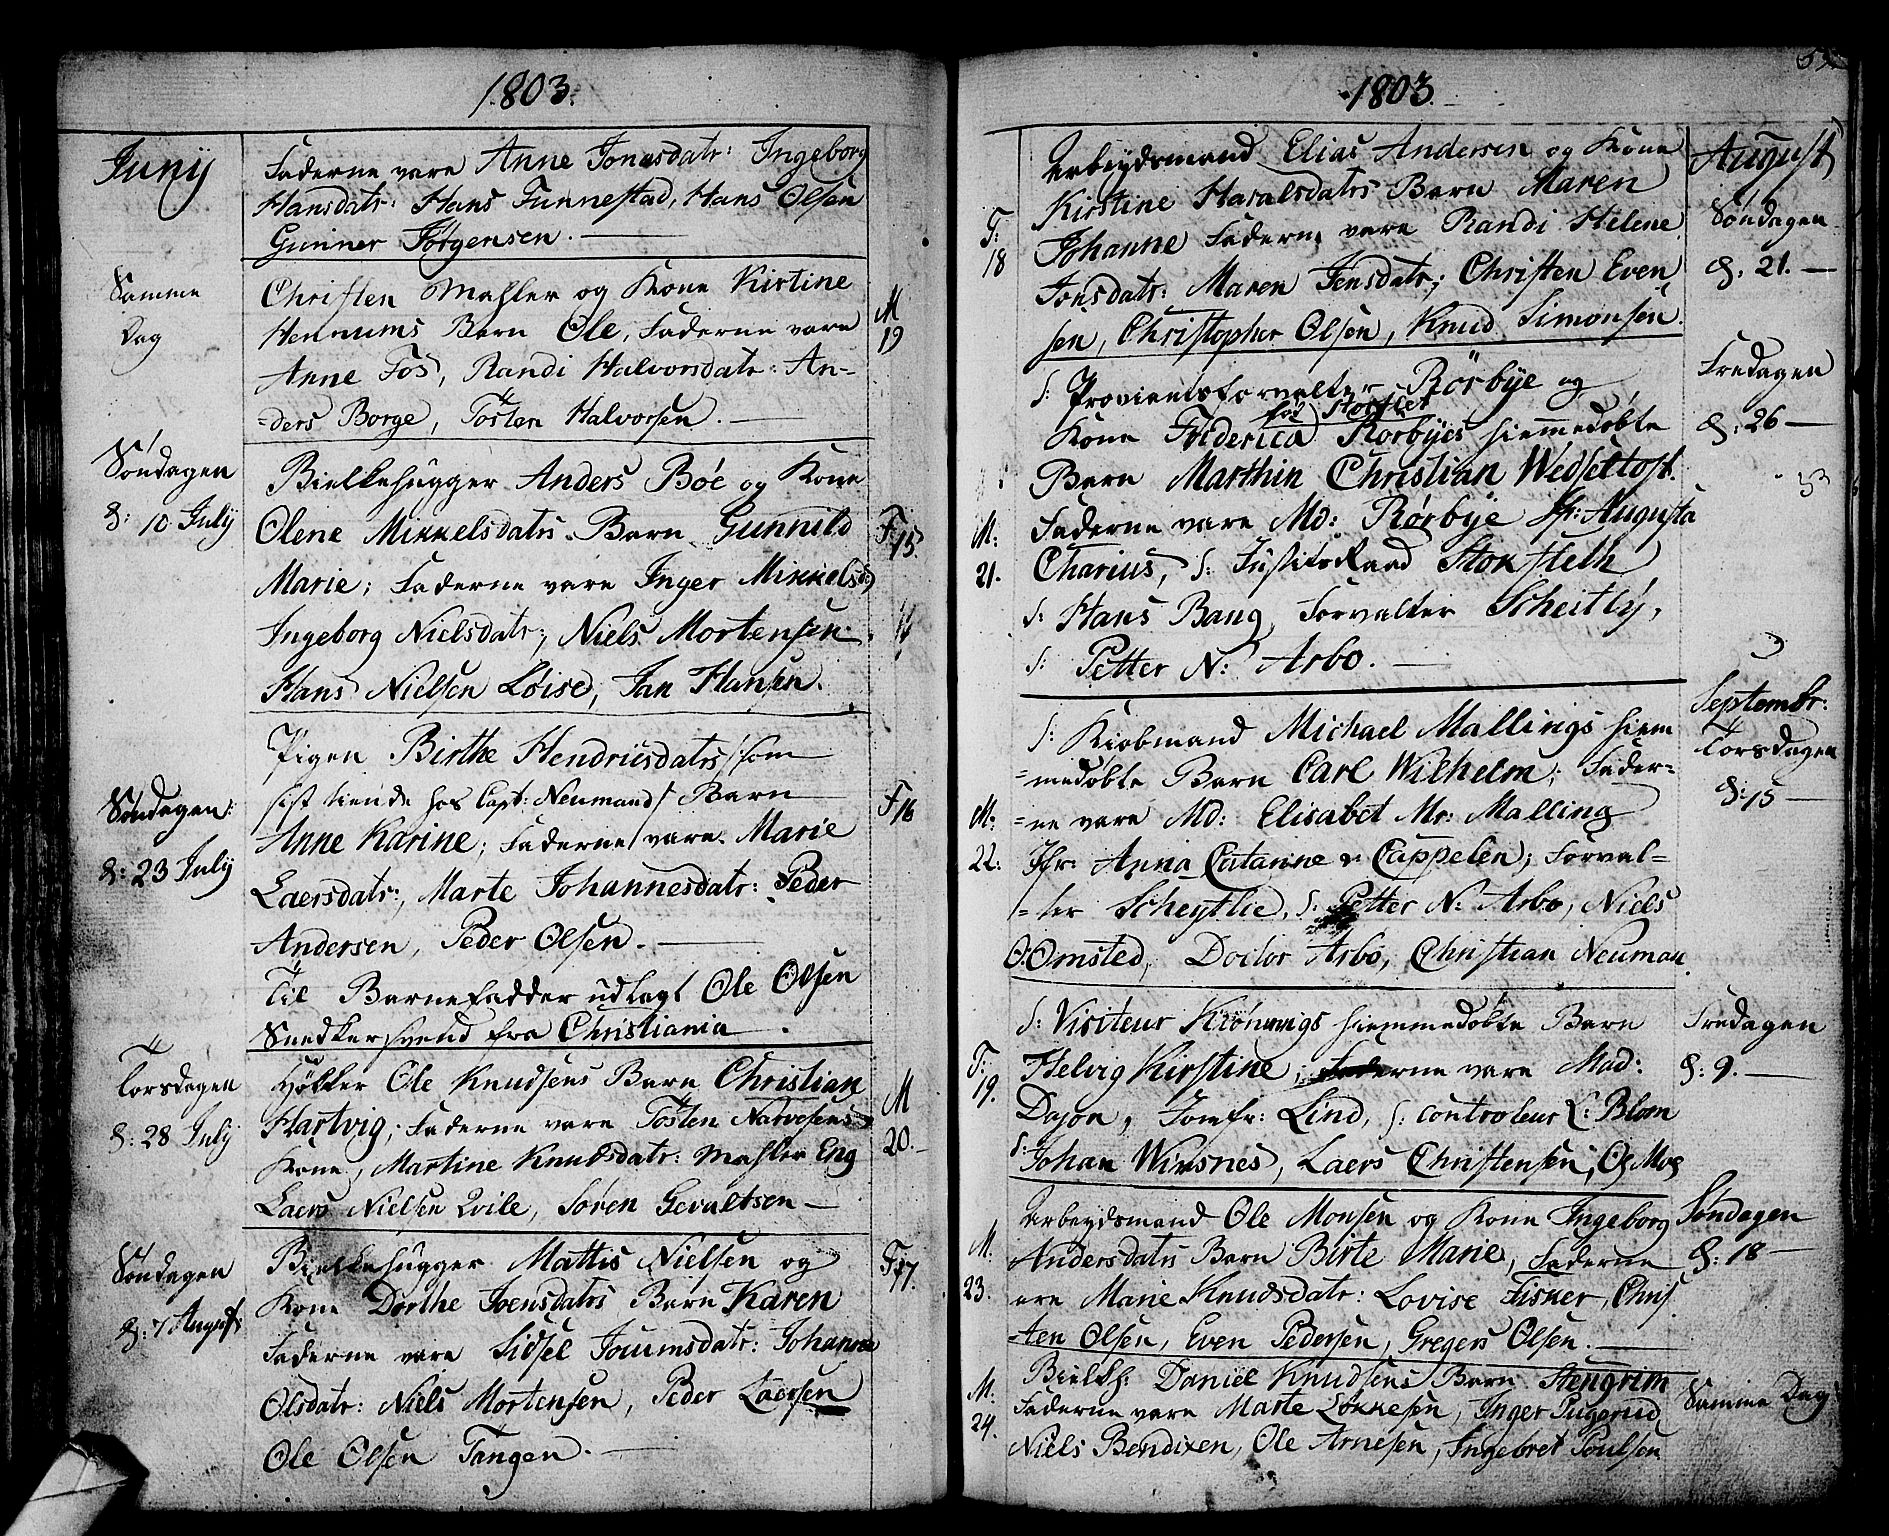 1803.
Junij
Faderne vare Anne Jonasdatr: Ingeborg
Hansdatr: Hans Funnestad, Hans Olsen
Gunner Jørgensen.
Samme
Dag
Christen Mahler og Kone Kirstine
Hennums Barn Ole, Faderne vare
Anne Fos, Randi Halvorsdatr: An-
=ders Borge, Tosten Halvorsen.
M
19
Søndagen
d: 10 July
Bielkehugger Anders Böe og Kone
Olene Mikkelsdatrs Barn Gunnild
Marie; Faderne vare Inger Mikkelsd:
Ingeborg Nielsdatr; Niels Mortensen
Hans Nielsen Loise, Jan Hansen.
F
15
Søndagen:
d: 23 July
Pigen Birthe Hendricsdatrs /: som
sist tiende hos Capt: Neumand / Barn
Anne Karine; Faderne vare Marie
Laersdatr:, Marte Johannesdatr: Peder
Andersen, Peder Olsen.
Til Barnefadder udlagt Ole Olsen
Snedkersvend fra Christiania.
F
16
Torsdagen
d: 28 July
Hökker Ole Knudsens Barn Christian
Hartvig; Faderne vare Tosten Narvesens
Kone, Martine Knudsdatr: Mahler Eng
Laers Nielsen Qvile, Søren Gevaltsen
M
20.
Søndagen
d: 7 August
Bielkehugger Mattis Nielsen og
Kone Dorthe Joensdatrs Barn Karen
Faderne vare Sidsel Joumsdatr: Johanne
Olsdatr: Niels Mortensen, Peder Laersen
Ole Olsen Tangen.
F
17.
1803.
August
Søndagen
d: 21.
F:
18
Arbeydsmand Elias Andersen og Kone
Kirstine Haralsdatrs Barn Maren
Johanne Faderne vare Randi Helene
Jonsdatr: Maren Jensdatr; Christen Even
sen, Christopher Olsen, Knud Simonsen.
Fredagen
d: 26
S: Proviantsforvalter Rörbye og
fød
Kone Frederica Rorbyes hiemmedøbte
Barn Marthin Christian Wedseltoft.
Faderne vare Md: Rørbye Jfr: Augusta
Charius, S: Justits Raad Stokfleth
S: Hans Bang, Forvalter Scheitly,
S: Petter N: Arbo.
M:
21.
Septembr:
Torsdagen
d: 15
S: Kiøbmand Michael Mallings hiem
=medøbte Barn Carl Wilhelm; Fader-
=ne vare Md: Elisabet Mr: Malling
Jfr: Anna Catarine v: Cappelen; Forval-
=ter Scheytlie, S: Petter N: Arbo, Niels
O: Omsted, Doctor Arbo, Christian Neuman.
M:
22:
Fredagen
d: 9.
S: Visiteur Kiönnigs hiemmedøbte Barn
Helvig Kirstine; Faderne vare Mad:
Dajon, Jomfr: Lind, S: Controleur C: Blom
S: Johan Wirsnes, Laers Christensen, Og Moe
F:
19.
Søndagen
d: 18
Arbeydsmand Ole Monsen og Kone Ingeborg
Andersdatrs Barn Birte Marie, Faderne
ere Marie Knudsdatr: Lovise Fisker, Chris
=ten Olsen, Even Pedersen, Gregers Olsen.
M.
23.
Samme Dag
Bielkh: Daniel Knudsens Barn Stengrim
Faderne vare Marte Lokkesen, Inger Pugerud
Niels Bendixen, Ole Arnesen, Ingebret Poulsen
M.
24.